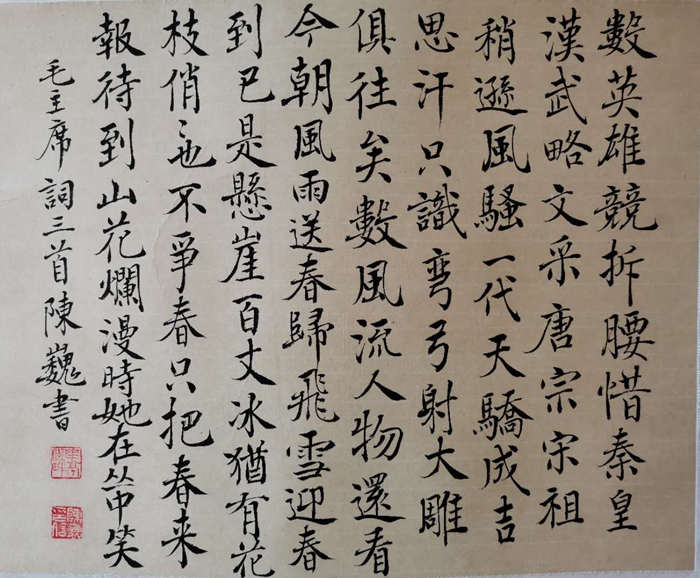 數英雄競拆腰惜秦皇
漢武略文采唐宗宋祖
稍遜風騷一代天驕成吉
思汗只識彎弓射大雕
俱往矣數風流人物還看
今朝風雨送春歸飛雪迎春
到已是懸崖百丈冰猶有花
枝俏〻也不爭春只把春来
報待到山花爛漫時她在丛中笑
毛主席詞三首陳巍書